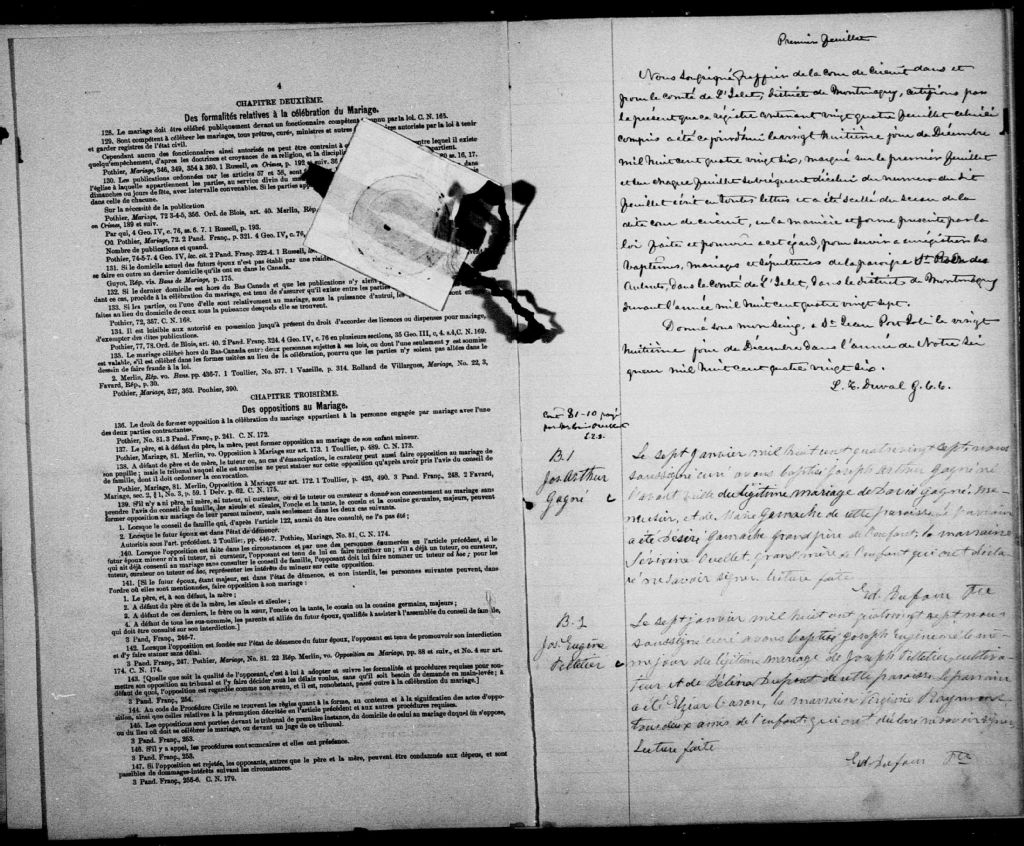 4
CHAPITRE DEUXIÈME.
Des formalités relatives à la célébration du Mariage.
128. Le mariage doit être célébré publiquement devant un fonctionnaire compétent reconnu par la loi. C. N. 165.
129. Sont compétents à célébrer les mariages, tous prêtres, curés, ministres et autres autorisés par la loi à tenir
et garder registres de l'état civil.
Cependant aucun des fonctionnaires ainsi autorisés ne peut être contraint à entre lequel il existe
quelqu'empêchement, d'après les doctrines et croyances de sa religion, et la discipline
Pothier, Mariage, 346, 349, 354 à 360. 1 Russell, on Crimes, p. 192 16, 17.
130. Les publications ordonnées par les articles 57 et 58, sont
l'église à laquelle appartiennent les parties, au service divin du
dimanche ou jours de fête, avec intervalle convenables. Si les parties
dans celle de chacune.
Sur la nécessité de la publication
Pothier, Mariage, 72 3-4-5, 356. Ord. de Blois, art. 40. Merlin, Rép.
on Crimes, 189 et suiv.
Par qui, 4 Geo. IV, c. 76, ss. 6. 7. 1 Russell, p. 193.
Où Pothier, Mariage, 72. 2 Pand. Franç., p. 321. 4 Geo. IV, c. 76,
Nombre de publications et quand.
Pothier, 74-5-7. 4 Geo. IV, loc. cit. 2 Pand. Franç. 322-4. 1 Russell,
131. Si le domicile actuel des futurs époux n'est pas établi par une
se faire en outre au dernier domicile qu'ils ont eu dans le Canada.
Guyot, Rép. vis. Bans de Mariage, p. 175.
132. Si le dernier domicile est hors du Bas-Canada et que les publications n'y aient
dant ce cas, procède à la célébration du mariage, est tenu de s'assurer qu'il existe entre les parties
133. Si les parties, ou l'une d'elle sont relativement au mariage, sous la puissance d'autrui, les
faites au lieu du domicile de ceux sous la puissance desquels elle se trouvent.
Pothier, 72, 357. C. N. 168.
134. Il est loisible aux autorité en possession jusqu'à présent du droit d'accorder des licences ou dispenses pour mariage,
d'exempter des dites publications.
Pothier, 77, 78. Ord. de Blois, art. 40. 2 Pand. Franç. 324. 4 Geo. IV., c. 76 en plusieurs sections, 35 Geo. III, c. 4. s.4, C. N. 169.
135. Le mariage célébré hors du Bas-Canada entre deux personnes sujettes à ses lois, ou dont l'une seulement y est soumise
est valable, s'il est célébré dans les formes usitées au lieu de la célébration, pourvu que les parties n'y soient pas allées dans le
dessein de faire fraude à la loi.
2. Merlin, Rép. vo. Bans. pp. 436-7. 1 Toullier, No. 577. 1 Vazeille, p. 314. Rolland de Villargues, Mariage, No. 22, 3,
Favard, Rép., p. 30.
Pothier, Mariage, 327, 363. Pouhier, 390.
CHAPITRE TROISIÈME.
Des oppositions au Mariage.
136. Le droit de former opposition à la célébration du mariage appartient à la personne engagée par mariage avec l'une
des deux parties contractantes.
Pothier, No. 81. 3 Pand. Franç., p. 241. C. N. 172.
137. Le père, et à défaut du père, la mère, peut former opposition au mariage de son enfant mineur.
Pothier, Mariage, 81. Merlin, vo. Opposition à Mariage sur art. 173. 1 Toullier, p. 489. C. N. 173.
138. A défaut de père et de mère, le tuteur ou, au cas d'émancipation, le curateur peut aussi faire opposition au mariage de
son pupille; mais le tribunal auquel elle est soumise ne peut statuer sur cette opposition qu'après avoir pris l'avis du conseil de
famille, dont il doit ordonner la convocation.
Pothier, Mariage, 81. Merlin, Opposition à Mariage sur art. 172. 1 Toullier, p. 425, 490. 3 Pand. Franç., 248. 2 Favard,
Mariage, sec. 2, § 1, No. 3, p. 59. 1 Delv. p. 62. C. N. 175.
139. S'il n'y a ni père, ni mère, ni tuteur, ni curateur, ou si le tuteur ou curateur a donné son consentement au mariage sans
prendre l'avis du conseil de famille, les aïeuls et aïeules, l'oncle et la tante, le cousin et la cousine germains, majeurs, peuvent
former opposition au mariage de leur parent mineur, mais seulement dans les deux cas suivants.
1. Lorsque le conseil de famille qui, d'après l'article 122, aurait dû être consulté, ne l'a pas été;
2. Lorsque le futur époux est dans l'état de démence.
Autorités sous l'art. précédent. 2 Toullier, pp. 446-7. Pothier, Mariage, No. 81. C. N. 174.
140. Lorsque l'opposition est faite dans les circonstances et par une des personnes énumérées en l'article précédent, si le
futur époux mineur n'a ni tuteur, ni curateur, l'opposant est tenu de lui en faire nommer un; s'il a déjà un tuteur, ou curateur,
qui ait déjà consenti au mariage sans consulter le conseil de famille, l'opposant doit lui faire nommer un tuteur ad hoc; pour les
tuteur, curateur ou tuteur ad hoc, représenter les intérêts du mineur sur cette opposition.
141. [Si le futur époux, étant majeur, est dans l'état de démence, et non interdit, les personnes suivantes peuvent, dans
l'ordre où elles sont mentionnées, faire opposition à son mariage:
1. Le père, et, à son défaut, la mère;
2. A défaut du père et de la mère, les aïeuls et aïeules;
3. A défaut de ces derniers, le frère ou la sœur, l'oncle ou la tante, le cousin ou la cousine germains, majeurs;
4. A défaut de tous les sus-nommés, les parents et alliés du futur époux, qualifiés à assister à l'assemblée du conseil de famille,
qui doit être consulté sur son interdiction.]
3 Pand, Franç., 246-7.
142. Lorsque l'opposition est fondée sur l'état de démence du futur époux, l'opposant est tenu de promouvoir son interdiction
et d'y faire statuer sans délai.
3 Pand. Franç., 247. Pothier, Mariage, No. 81. 22 Rép. Merlin, vo. Opposition au Mariage, pp. 88 et suiv., et No. 4 sur art.
174. C. N. 174.
143. [Quelle que soit la qualité de l'opposant, c'est à lui à adopter et suivre les formalités et procédures requises pour sou-
mettre son opposition au tribunal et l'y faire décider sous les délais voulus, sans qu'il soit besoin de demande en main-levée; à
défaut de quoi, l'opposition est regardée comme non avenue, et il est, nonobstant, passé outre à la célébration du mariage.]
3 Pand. Franç., 254.
144. Au code de Procédure Civile se trouvent les règles quant à la forme, au contenu et à la signification des actes d'oppo-
sition, ainsi que celles relatives à la péremption décrétée en l'article précédent et aux autres procédures requises.
145. Les oppositions sont portées devant le tribunal de première instance, du domicile de celui au mariage duquel on s'oppose,
ou du lieu où doit se célébrer le mariage, ou devant un juge de ce tribunal.
3 Pand. Franç., 253.
146. S'il y a appel, les procédures sont sommaires et elles ont préséance.
3 Pand. Franç., 258.
147. Si l'opposition est rejetée, les opposants, autres que le père et la mère, peuvent être condamnés aux dépens, et sont
passibles de dommages-intérêts suivant les circonstances.
3 Pand. Franç., 255-6. C. N. 179.
Premier feuillet
Nous soussigné Greffier de la cour de circuit dans et
pour le comté de L'Islet, District de Montmagny, certifions par
le présent que ce régistre contenant vingt quatre feuillet celui ci
compris a été ce jourd'hui le vingt huitième jour de Décembre
mil huit cent quatre vingt six, marqué sur le premier feuillet
et sur chaque feuillet subséquent d'icelui du numéro du dit
feuillet écrit en toutes lettres et a été scellé du sceau de la
dite cour de circuit, en la manière et forme prescrite par la
loi faite et pourvue a cet égard, pour servir a enrégistrer les
Baptêmes, mariages et sépultures de la paroisse St. Roch des
Aulnets, dans le comté de L'Islet, dans le district de Montmagny
durant l'année mil huit cent quatre vingt sept.
Donné sous mon seing, a St. Jean Port Joli le vingt
huitième jour de Décembre dans l'année de Notre Sei
gneur mil huit cent quatre vingt six.
L. Z. Duval G. C. C.
B. 1
Jos. Arthur
Gagné
Le sept janvier mil huit cent quatrevingt sept nous
soussigné curé avons baptisé Joseph Arthur Gagné né
l'avant veille du légitime mariage de David Gagné, me-
nuisier, et de Marie Gamache de cette paroisse. Le parrain
a été Désiré Gamache grand père de l'enfant, la marraine
Séverine Ouellet, grand'mère de l'enfant qui ont décla-
ré ne savoir signer. Lecture faite
Ed. Dufour Ptre
B. 2
Jos. Eugène
Pelletier
Le sept janvier mil huit cent quatrevingt sept nous
soussigné curé avons baptisé Joseph Eugène né le mê-
me jour du légitime mariage de Joseph Pelletier, cultiva-
teur et de Délina Dupont de cette paroisse. Le parrain
a été Elzéar Caron, la marraine Virginie Raymond
tous deux amis de l'enfant qui ont déclaré ne savoir signer.
Lecture faite
Ed. Dufour Ptre